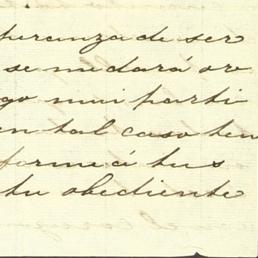 peranza de ser
se me dará or
go mui parti
en tal caso ten
forme á tus
tu obediente